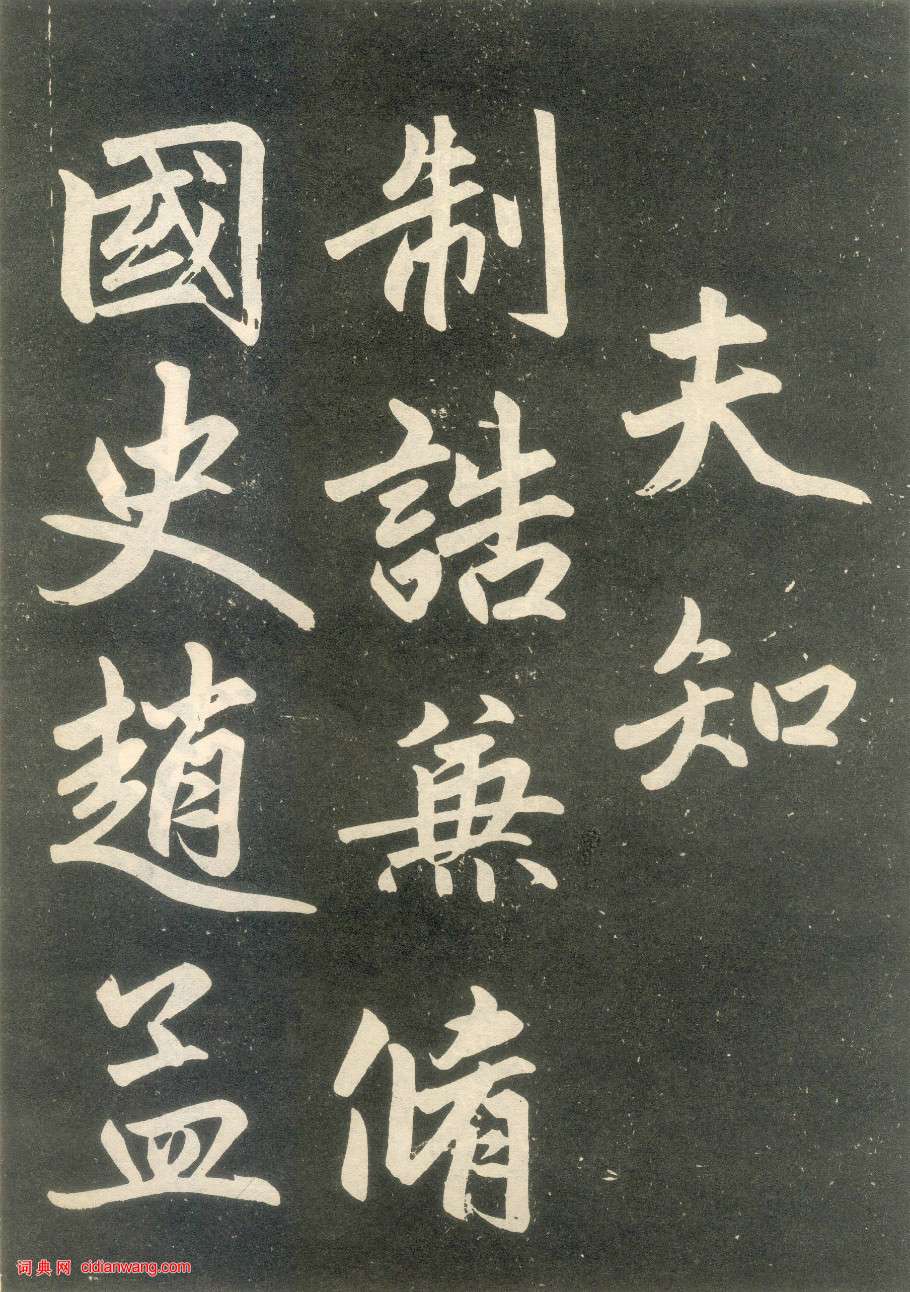 夫知
制誥兼脩
國史趙孟
词典网 cidianwang.com